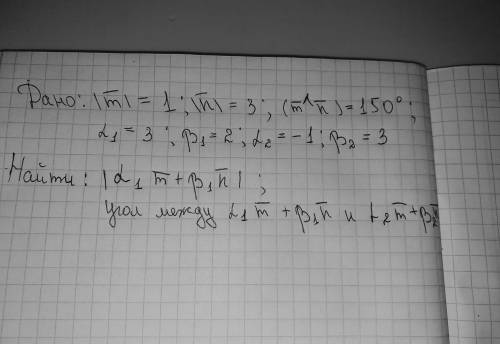 Дано: |m̅| = 1 ; |n̅| = 3 ; (m̅^n̅) = 150° ;
α₁ = 3 ; β₁ = 2 ; α₂ = -1 ; β₂ = 3
Найти: |α₁ m̅ + β₁ n̅| ;
угол между α₁ m̅ + β₁ n̅ и α₂ m̅ + β₂ n̅